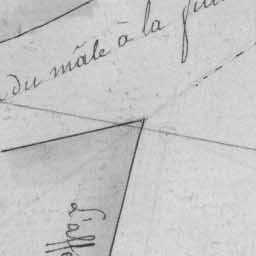 du mâle à la
l'aff